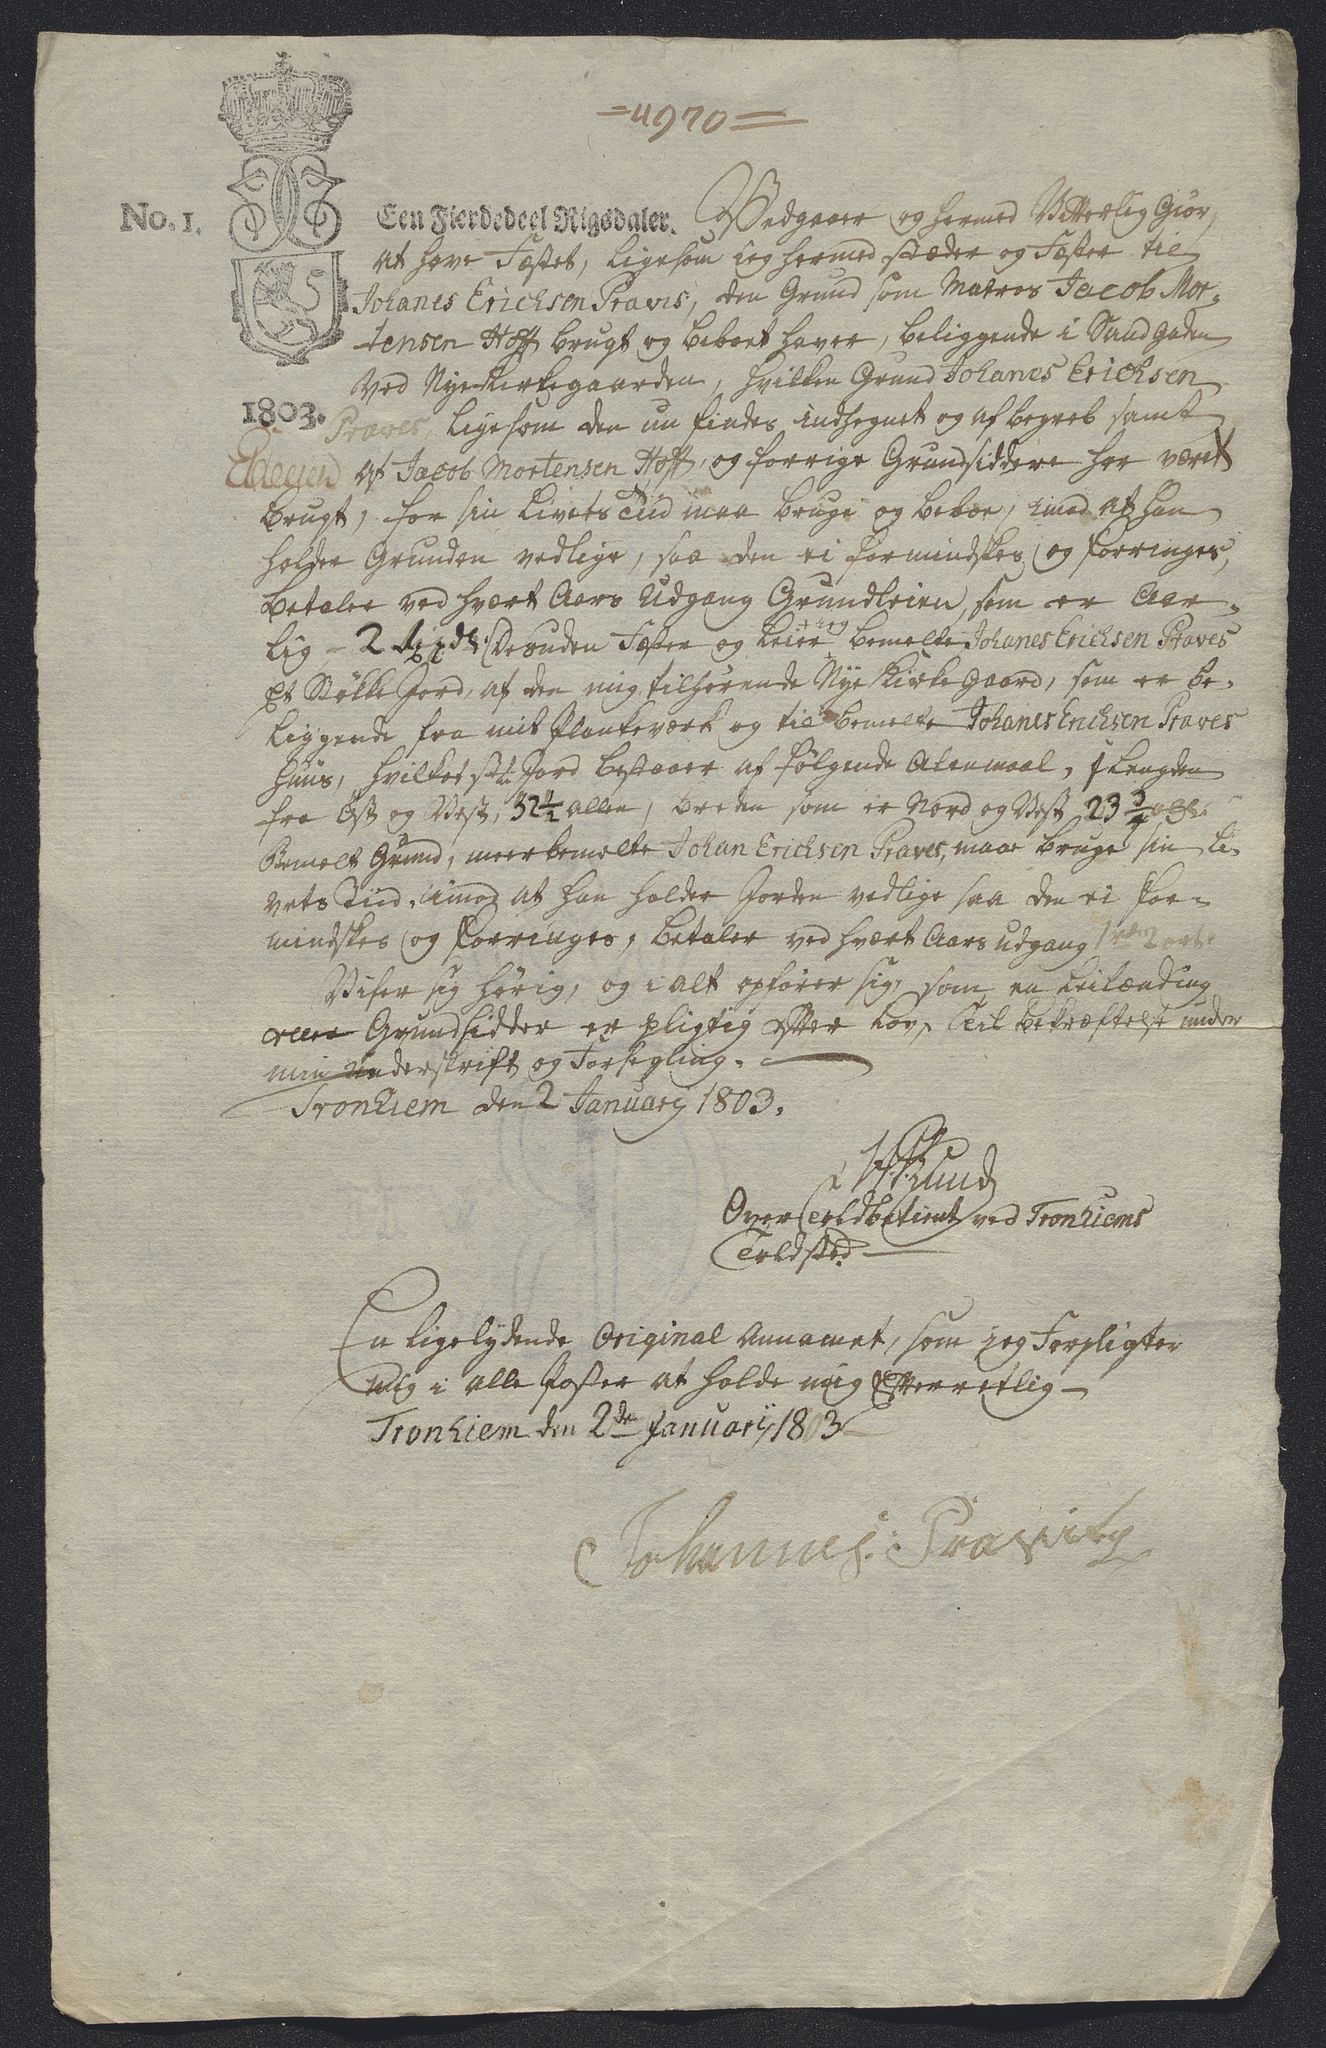 =4970=
No. 1.
Een Fierdedeel Rigsdaler. Vedgaaer og hermed Vitterlig Giør,
at have Fæstet, ligesom jeg hermed stæder og Fæster til
Johanes Erichsen Praves, den Grund som Matros Jacob Mor-
tensen Hoff brugt og beboet haver, beliggende i Sandgaden
ved Nyekirkegaarden, hvilken Grund Johanes Erichsen
1803.
Praves, ligesom den nu findes indhegnet og af begreb samt
af Jacob Mortensen Hoff, og forrige Grundsiddere har været
brugt, for sin Livets Tiid maa bruge og beboe, imod at han
holder Grunden vedlige, saa den ei formindskes og forringes,
betaler ved hvert Aars Udgang Grundleien, som er Aar-
lig - 2 rixdr: Desuden Fæster og Leier jeg bemelte Johanes Erichsen Praves
Et Støkke Jord, af den mig tilhørende Nye Kirke Gaard, som er be-
liggende fra mit Plankeværk og til bemelte Johanes Erichsen Praves
Huus, hvilket st: Jord bestaaer af følgende Alenmaal, i Lengden
fra Øst og Vest, 32 1/2 allen, breden som er Nord og Vest 23 3/4 all:
Bemelt Grund, meerbemelte Johan Erichsen Praves, maae bruge sin Li-
vets Tiid, imod at han holder Jorden vedlige saa den ei for-
mindskes og forringes, betaler ved hvert Aars udgang 1 rd 2 ort.
Viser sig hørig, og i alt opfører sig, som en Leilænding
eller Grundsidder er pligtig efter Lov, Til bekræftelse under
min underskrift og Forsegling.
Tronhiem den 2 Januarij 1803.
Lund
Over Toldbetient ved Tronhiems
Toldsted.
En ligelydende Original Annamet, som jeg Forpligter
mig i alle Poster at holde mig Efterretlig
Tronhiem den 2de Januarij 1803
Johannes: Pravitz